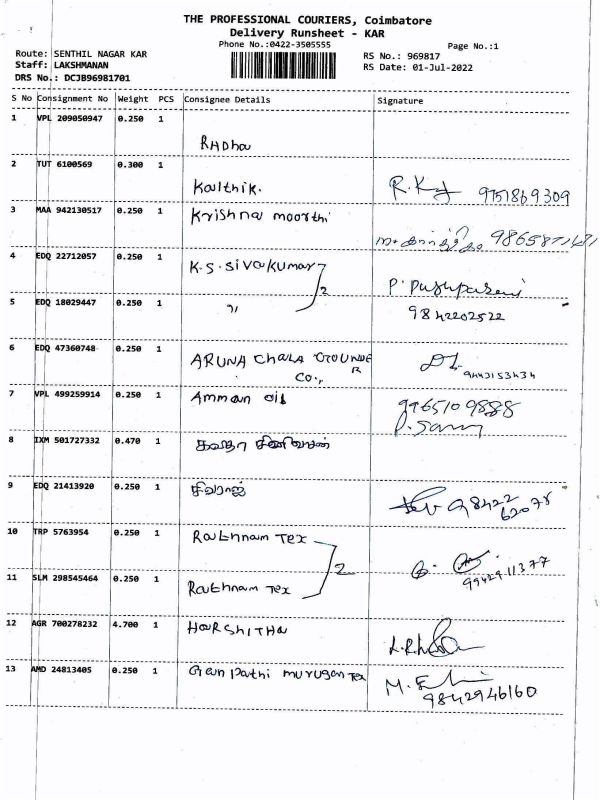 THE PROFESSIONAL COURIERS, Coimbatore
Delivery Runsheet - KAR
Phone No.:0422-3505555
Page No.:1
Route: SENTHIL NAGAR KAR
RS No.: 969817
Staff: LAKSHMANAN
RS Date: 01-Jul-2022
DRS No.: DCJB96981701
S No Consignment No Weight PCS Consignee Details Signature
1 VPL 209050947 0.250 1
Radha
2 TUT 6100569 0.300 1
Kalthik. R.K 9751869309
3 MAA 942130517 0.250 1 Krishna moorthi
4 EDQ 22712057 0.250 1 K.S.Sivakumar 2
P. Pushparani
5 EDQ 18029447 0.250 1 " 9842202522
6 EDQ 47360748 0.250 1
ARUNA Chala GOUNDER
CO., 9443153434
7 VPL 499259914 0.250 1 Amman oil 9965109888
8 IXM 501727332 0.470 1
கவிதா சீனிவாசன்
9 EDQ 21413920 0.250 1
சிவராஜ் 98422
62078
10 TRP 5763954 0.250 1 Rathnam Tex 2
9942911377
11 SLM 298545464 0.250 1
Rathnam Tex
12 AGR 700278232 4.700 1 Harshitha
13 AMD 24813405 0.250 1 Ganpathi murugan Tex
9842946160